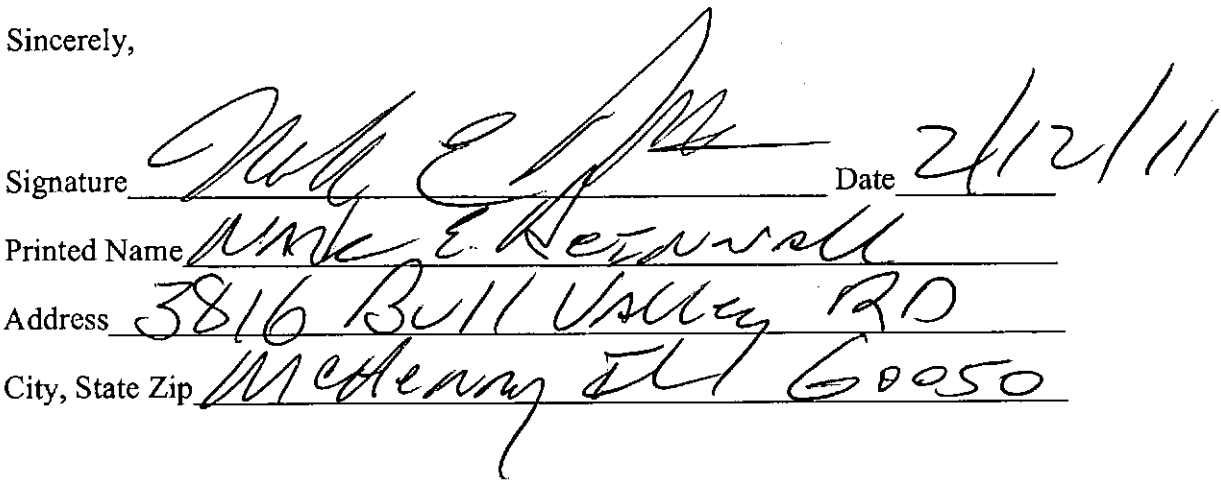 Sincerely,
Signature Date 2/12/11
Printed Name Mark E.
Address 3816 Bull Valley RD
City, State Zip McHenry Ill 60050